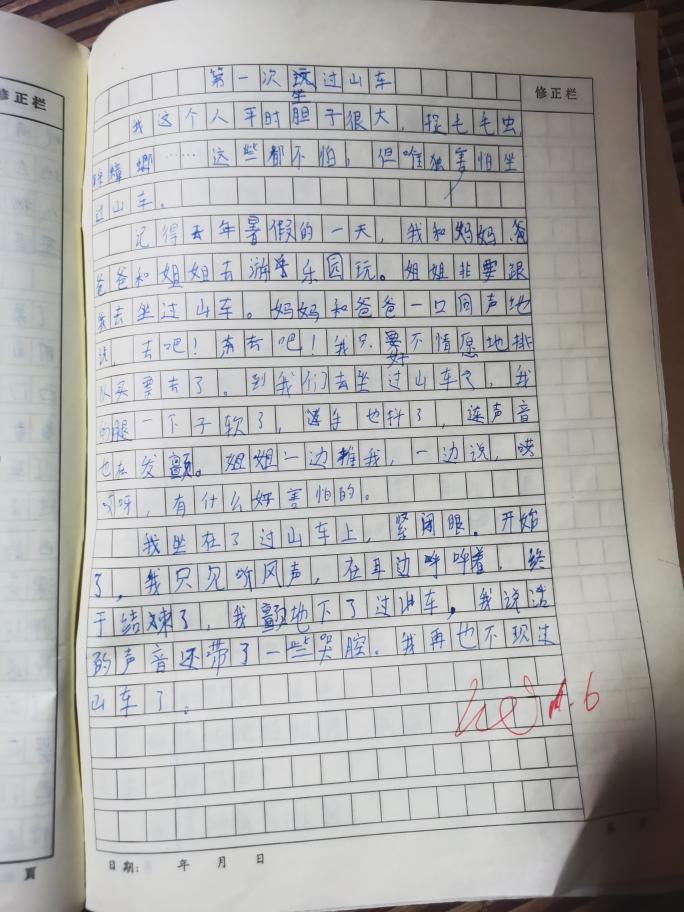 修正栏
第一次玩过山车
坐
修正栏
我这个人平时胆子很大，捉毛毛虫
蟑螂……这些都不怕，但唯独害怕坐
过山车。
记得去年暑假的一天，我和妈妈爸
爸爸和姐姐去游乐园玩。姐姐非要跟
我去坐过山车。妈妈和爸爸一口同声地
说，去吧！去吧！我只要不情愿地排
好
队买票去了。到我们去坐过山车了，我
的腿一下子软了，手也抖了，连声音
也在发颤。姐姐一边推我，一边说，哎
呀呀，有什么好害怕的。
我坐在了过山车上，紧闭眼。开始
了，我只见听风声，在耳边呼呼着，终
于结束了，我颤地下了过山车。我说话
的声音还带了一些哭腔。我再也不玩过
山车了。
日期： 年 月 日
页